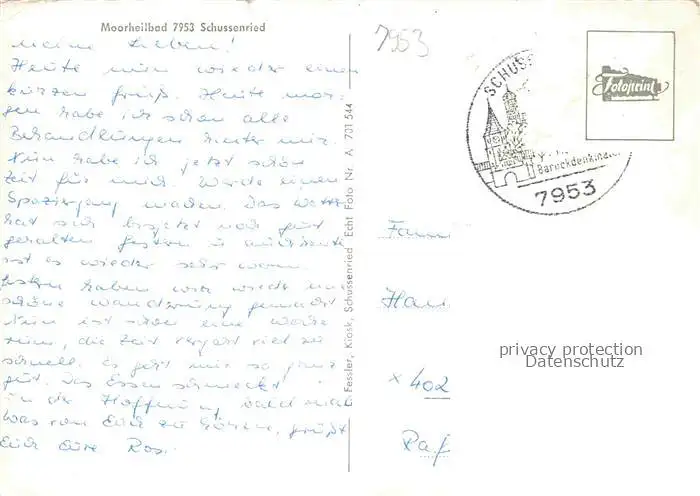 Moorheilbad 7953 Schussenried
meine Lieben!
Heute nun wieder einen
kurzen Gruß. Heute mor-
gen habe ich schon alle
Behandlungen hinter mir.
Nun habe ich jetzt schön
Zeit für mich. Werde einen
Spaziergang machen. Das Wetter
hat sich bis jetzt noch gut
gehalten gestern u. auch heute
ist es wieder sehr warm
Gestern haben wir wieder
schöne Wanderung gemacht
Nun ist schon eine Woche
rum, die Zeit vergeht viel zu
schnell. Es geht mir so ganz
gut. Das Essen schmeckt
in der Hoffnung bald
was von Euch zu hören, grüßt
Euch Eure Ros.
L. Fessler, Kiosk, Schussenried Echt Foto Nr. A 731 544
7953
Fotoprint
SCHUSS
Barockdenkmäler
7953
Fam
Han
privacy protection
Datenschutz
x 402